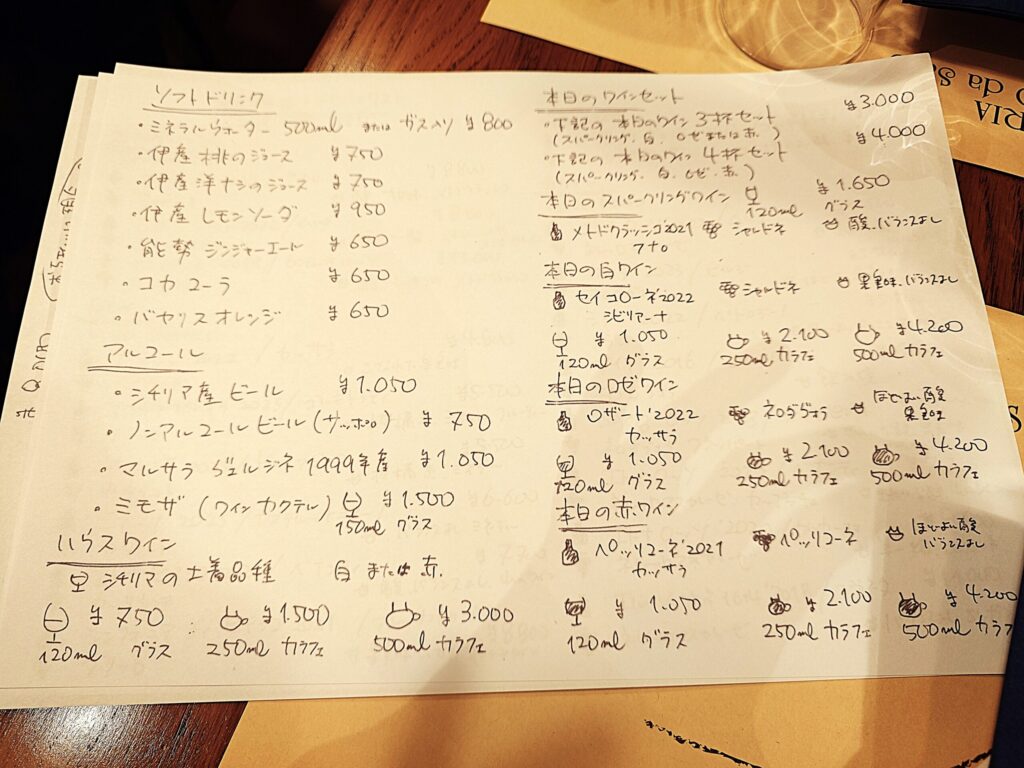 ソフトドリンク
・ミネラルウォーター 500ml または ガス入り ¥800
・伊産 桃のジュース ¥750
・伊産洋ナシのジュース ¥750
・伊産 レモンソーダ ¥950
・能勢 ジンジャーエール ¥650
・コカコーラ ¥650
・バヤリス オレンジ ¥650
アルコール
・シチリア産 ビール ¥1.050
・ノンアルコール ビール (サッポロ) ¥750
・マルサラ ヴェルジネ 1999年産 ¥1.050
・ミモザ (ワインカクテル) ¥1.500
150ml グラス
ハウスワイン
シチリアの土着品種 白 または 赤.
¥750 ¥1.500 ¥3.000
120ml グラス 250ml カラフェ 500ml カラフェ
本日のワインセット
・下記の 本日のワイン 3杯セット ¥3.000
(スパークリング. 白. ロゼまたは赤.)
・下記の 本日のワイン 4杯セット ¥4.000
(スパークリング. 白. ロゼ. 赤.)
本日のスパークリングワイン ¥1.650
120ml グラス
メトドクラッシコ'2021 シャルドネ 酸.バランスよし
本日の白ワイン
セイコローネ'2022 シャルドネ バランスよし
シビリアーナ
¥1.050 ¥2.100 ¥4.200
120ml グラス 250ml カラフェ 500ml カラフェ
本日のロゼワイン
ロザート'2022 ほどよい酸
カッサラ
¥1.050 ¥2.100 ¥4.200
120ml グラス 250ml カラフェ 500ml カラフェ
本日の赤ワイン
ペッリコーネ'2021 ペッリコーネ ほどよい酸
カッサラ バランスよし
¥1.050 ¥2.100 ¥4.200
120ml グラス 250ml カラフェ 500ml カラフ